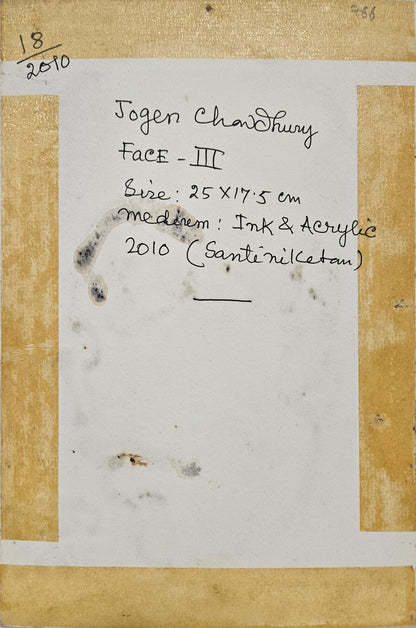 18/2010
766
Jogen Chowdhury
FACE - III
Size: 25 X 17.5 cm
Medium: Ink & Acrylic
2010 (Santiniketan)